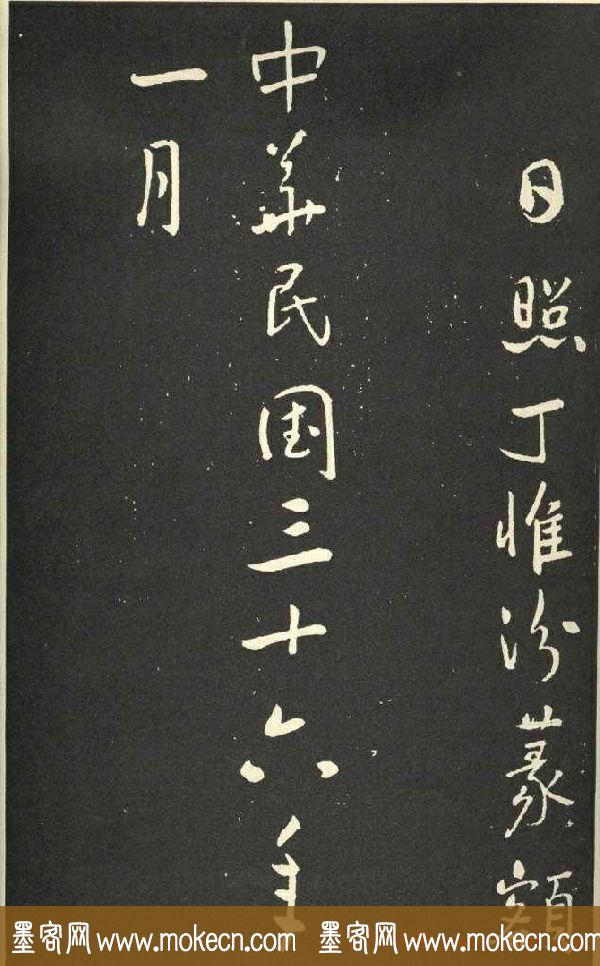 日照丁惟汾蒃額
中華民国三十六年
一月
墨客网 www.mokecn.com 墨客网 www.mokecn.com